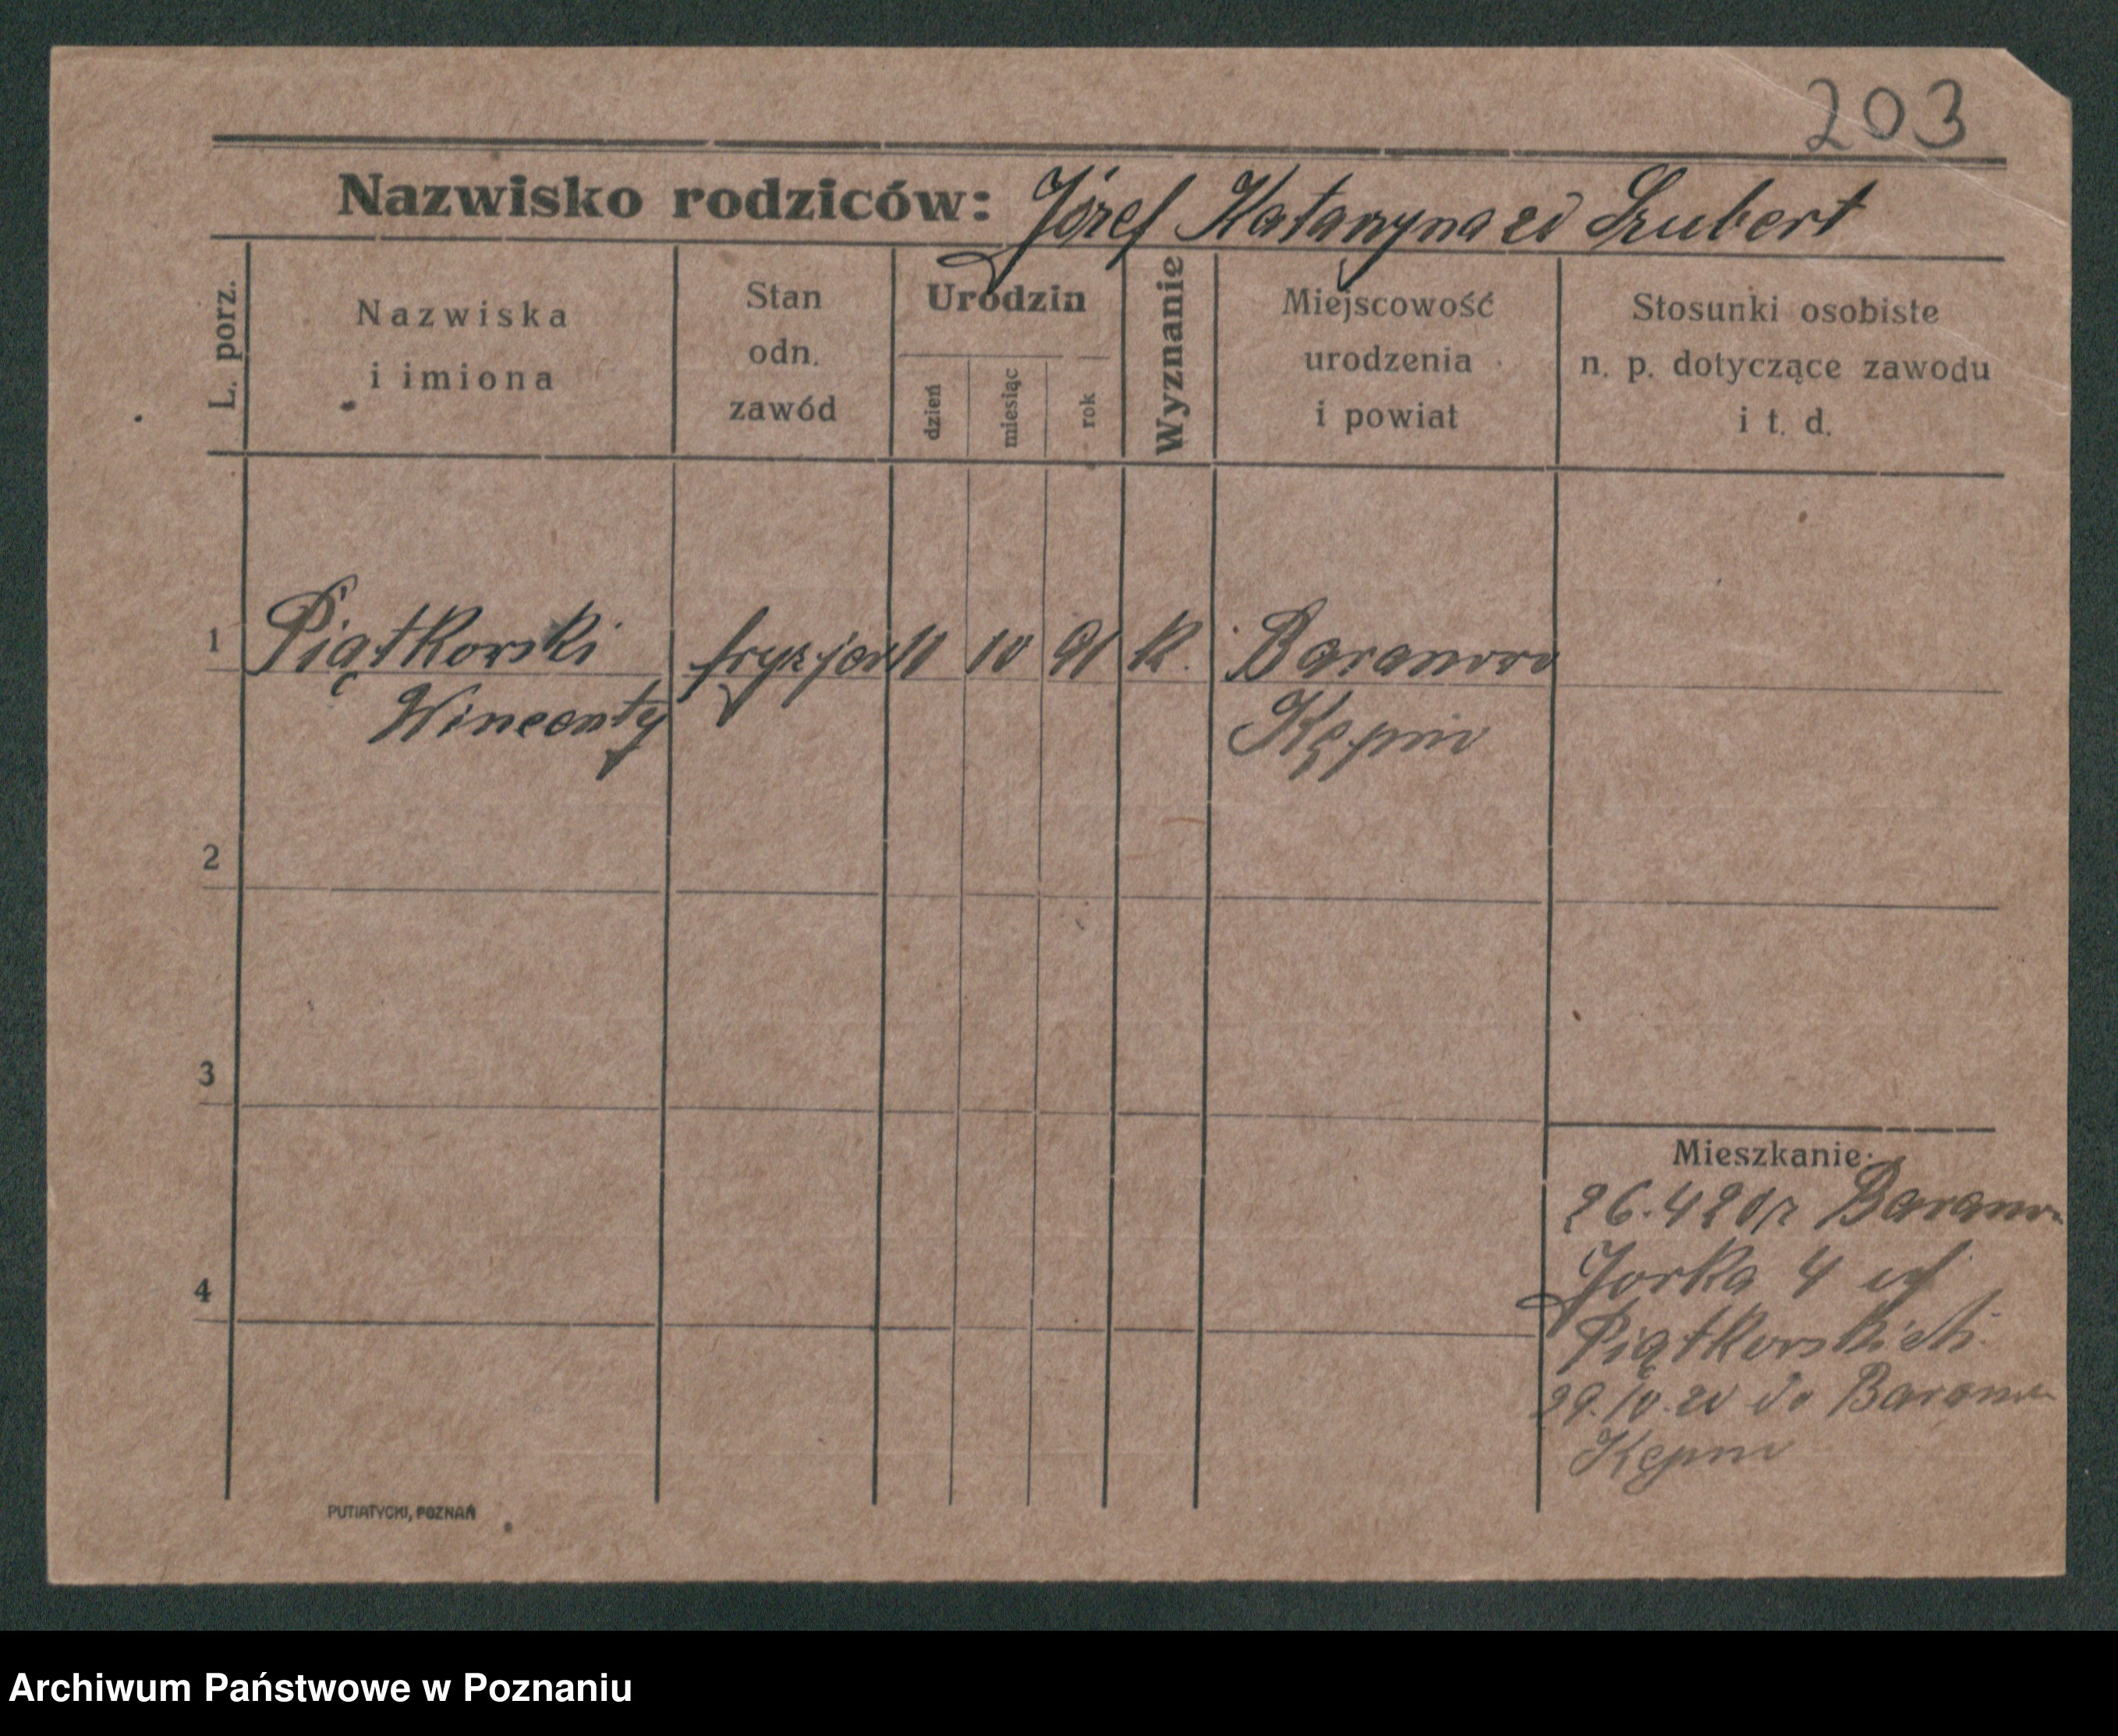 203
Nazwisko rodziców: Józef Katarzyna zd Szubert
L. porz.
Nazwiska
i imiona
Stan
odn.
zawód
Urodzin
dzień
miesiąc
rok
Wyznanie
Miejscowość
urodzenia
i powiat
Stosunki osobiste
n. p. dotyczące zawodu
i t. d.
1 Piątkowski fryzjer 11 10 91 K. Baranowo
Wincenty Kępno
2
3
4
Mieszkanie:
26.4 20 r Baranow
Jorka 4
Piątkowskich
29.10.20 do Baranow
Kępno
PUTIATYCKI, POZNAŃ
Archiwum Państwowe w Poznaniu